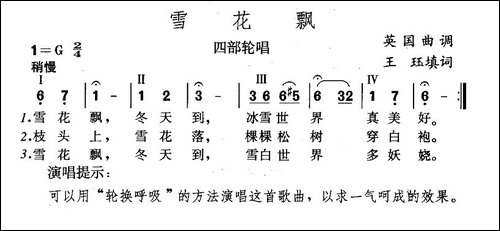 雪花飘
四部轮唱
英国曲调
1=G 2/4
王珏填词
稍慢
I II III IV
6 7 | 1 - | 1 2 | 3 - | 3 6 6 #5 | 6 32 | 1 7 | 6 - :||
1.雪花飘，冬天到，冰雪世界真美好。
2.枝头上，雪花落，棵棵松树穿白袍。
3.雪花飘，冬天到，雪白世界多妖娆。
演唱提示：
可以用“轮换呼吸”的方法演唱这首歌曲，以求一气呵成的效果。